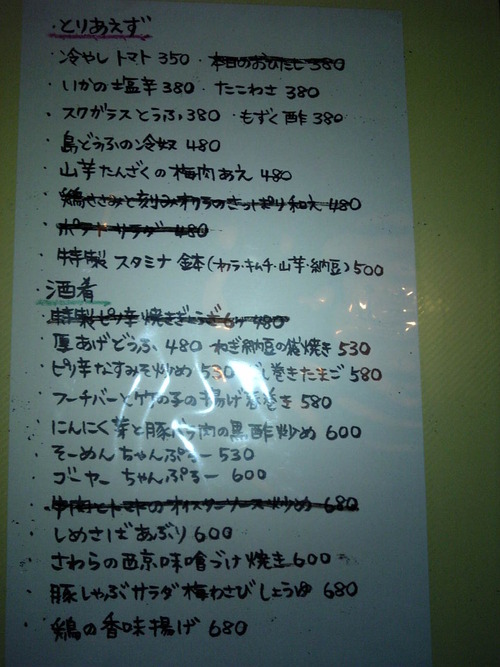 ・とりあえず
・冷やしトマト 350 ・本日のおひたし 380
・いかの塩辛 380 ・たこわさ 380
・スクガラスとうふ 380 ・もずく酢 380
・島どうふの冷奴 480
・山芋たんざくの梅肉あえ 480
・鶏ささみと刻みオクラのさっぱり和え 480
・ポテトサラダ 480
・特製スタミナ鉢(オクラ・キムチ・山芋・納豆) 500
・酒肴
・特製ピリ辛焼きぎょうざ6ヶ 480
・厚あげどうふ 480 ねぎ納豆の袋焼き 530
・ピリ辛なすみそ炒め 530 だし巻きたまご 580
・フーチバーと竹の子の揚げ春巻き 580
・にんにく芽と豚バラ肉の黒酢炒め 600
・そーめんちゃんぷるー 530
・ゴーヤーちゃんぷるー 600
・牛肉とトマトのオイスターソース炒め 680
・しめさばあぶり 600
・さわらの西京味噌づけ焼き 600
・豚しゃぶサラダ梅わさびしょうゆ 680
・鶏の香味揚げ 680